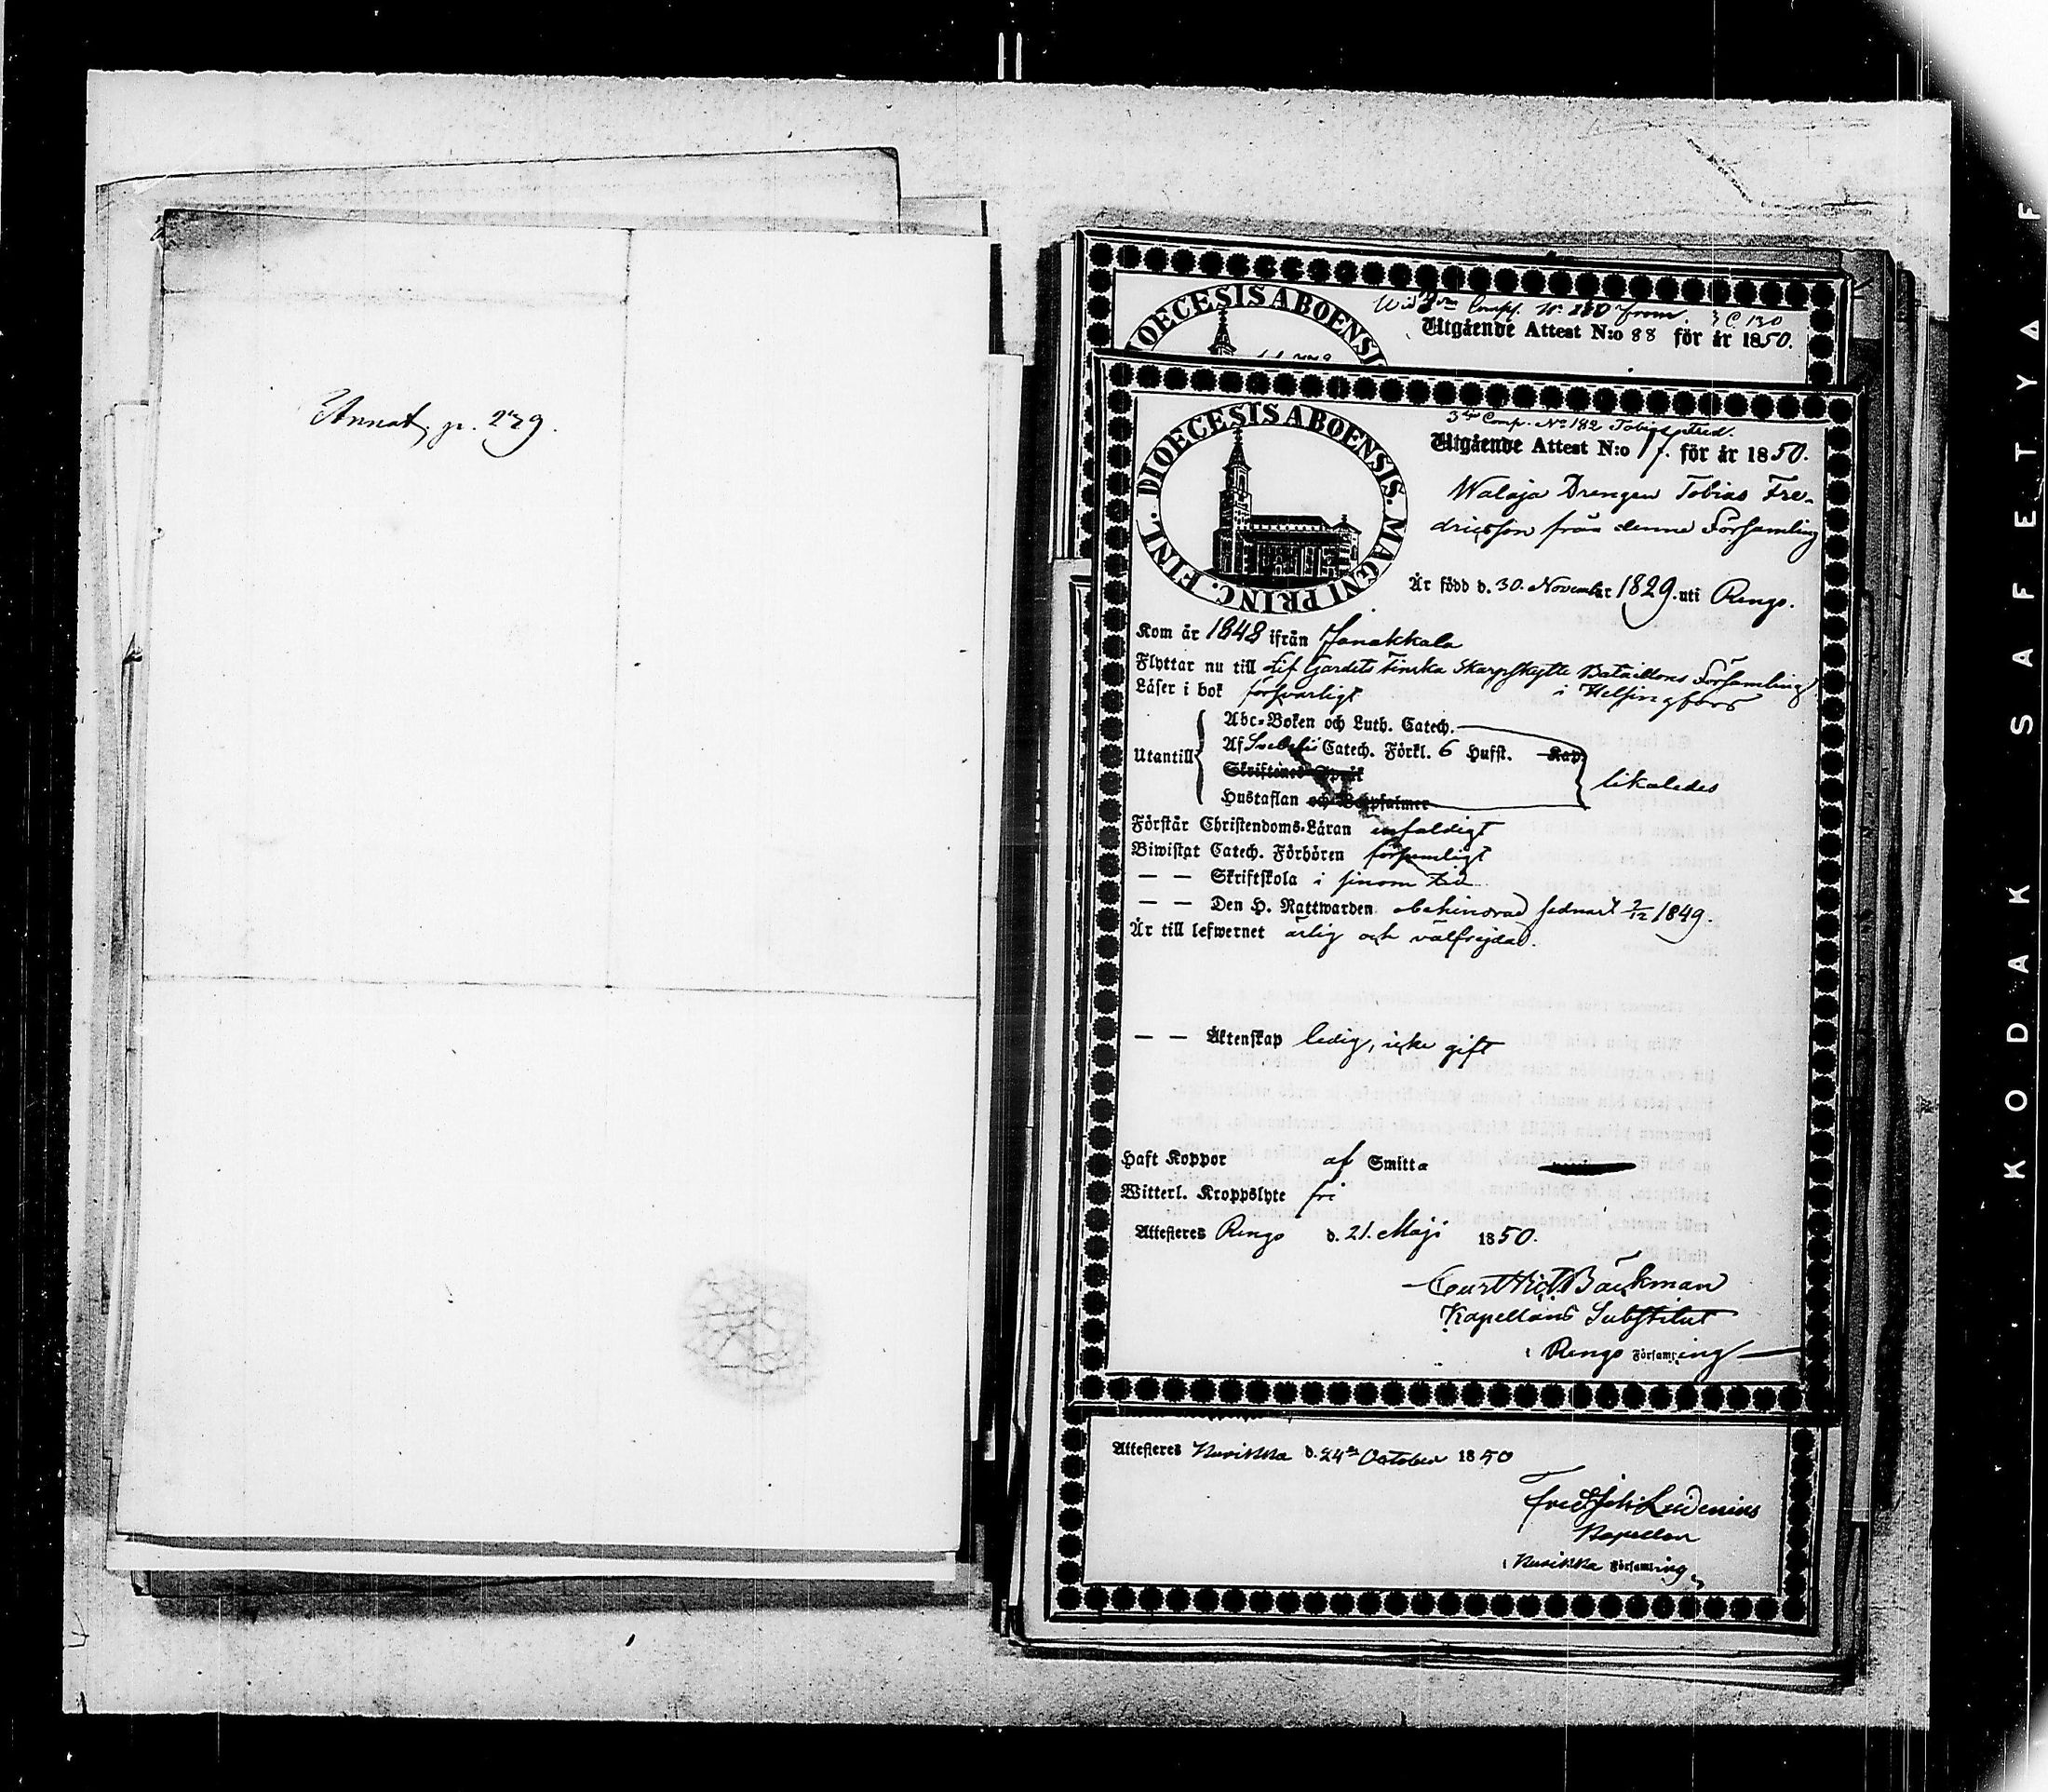 Annot. p. 279.
DIOECESIS ABOENSIS
Wid 3:je Comp. N:o 180 From. 3 C 130
Utgående Attest N:o 88 för år 1850.
DIOECESIS ABOENSIS. MAGNI PRINC. FINL.
3dje Comp. No 182 Tobias Fred.
Utgående Attest N:o 17. för år 1850.
Walaja Drengen Tobias Fre-
dricsson från denne Församling
Är född d. 30. November 1829. uti Rengo.
Kom år 1848 ifrån Janakkala
Flyttar nu till Lif Gardets Finska Skarpskytte Bataillons Församling
Läser i bok försvarligt i Helsingfors
Utantill
Abc-Boken och Luth. Catech.
Af Svebelii Catech. Förkl. 6 Hufst. Kap.
Skriftenes Språk
Hustaflan och Botpsalmer
likaledes
Förstår Christendoms-Läran enfaldigt
Biwistat Catech. Förhören försumligt
— — Skriftskola i sinom tid
— — Den H. Nattwarden obehindrad sednast 2/12 1849.
Är till lefwernet ärlig och välfrejdad.
— — Äktenskap ledig, icke gift
Haft Koppor af Smitta
Witterl. Kroppslyte fri
Attesteras Rengo d. 21. Maji 1850.
Curt Vict. Bäckman
Kapellans Substitut
i Rengo Församling
Attesteras Kuvikka d. 24de October 1850
Fred. Joh. Ludenius
Kapellan
i Kuvikka Församling
KODAK SAFETY F